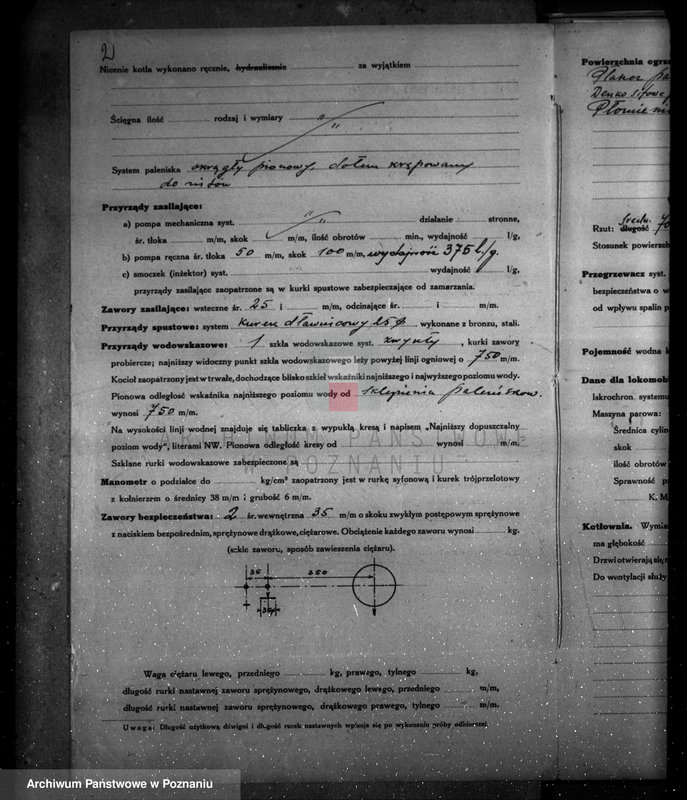 2
Nicenie kotła wykonano ręcznie, hydraulicznie za wyjątkiem
Ścięgna ilość rodzaj i wymiary "
"
System paleniska okrągły pionowy, dołem krępowany
do nitów
Przyrządy zasilające:
a) pompa mechaniczna syst. " działanie stronne,
śr. tłoka m/m, skok m/m, ilość obrotów min., wydajność l/g,
b) pompa ręczna śr. tłoka 50 m/m, skok 100 m/m, wydajność 375 l/g.
c) smoczek (inżektor) syst. wydajność l/g,
przyrządy zasilające zaopatrzone są w kurki spustowe zabezpieczające od zamarzania.
Zawory zasilające: wsteczne śr. 25 i m/m, odcinające śr. i m/m.
Przyrządy spustowe: system kurek dławnicowy 25 ϕ wykonane z bronzu, stali.
Przyrządy wodowskazowe: 1 szkła wodowskazowe syst. zwykły, kurki zawory
probiercze; najniższy widoczny punkt szkła wodowskazowego leży powyżej linii ogniowej o 750 m/m.
Kocioł zaopatrzony jest w trwałe, dochodzące blisko szkieł wskaźniki najniższego i najwyższego poziomu wody.
Pionowa odległość wskaźnika najniższego poziomu wody od sklepienia paleniskow.
wynosi 750 m/m.
Na wysokości linji wodnej znajduje się tabliczka z wypukłą kresą i napisem „Najniższy dopuszczalny
poziom wody", literami NW. Pionowa odległość kresy od wynosi m/m.
Szklane rurki wodowskazowe zabezpieczone są
Manometr o podziałce do kg/cm² zaopatrzony jest w rurkę syfonową i kurek trójprzelotowy
z kołnierzem o średnicy 38 m/m i grubość 6 m/m.
Zawory bezpieczeństwa: 2 śr. wewnętrzna 35 m/m o skoku zwykłym postępowym sprężynowe
z naciskiem bezpośrednim, sprężynowe drążkowe, ciężarowe. Obciążenie każdego zaworu wynosi kg.
(szkic zaworu, sposób zawieszenia ciężaru).
35 350
35
Waga ciężaru lewego, przedniego kg, prawego, tylnego kg,
długość rurki nastawnej zaworu sprężynowego, drążkowego lewego, przedniego m/m,
długość rurki nastawnej zaworu sprężynowego, drążkowego prawego, tylnego m/m.
Uwaga: Długość użytkową dźwigni i długość rurek nastawnych wpisuje się po wykonaniu próby odbiorczej.
Powierzchnia ogrze
Denko sitowe
Płomie
Średn. 70
Rzut: długość
Stosunek powierzch
Przegrzewacz syst.
bezpieczeństwa o w
od wpływu spalin p
Pojemność wodna k
Dane dla lokomobi
Iskrochron. systemu
Maszyna parowa:
Średnica cylin
skok
ilość obrotów
Sprawność p
K. M.
Kotłownia. Wymia
ma głębokość
Drzwi otwierają się
Do wentylacji służy
ARCHIWUM PAŃSTWOWE
W POZNANIU
Archiwum Państwowe w Poznaniu